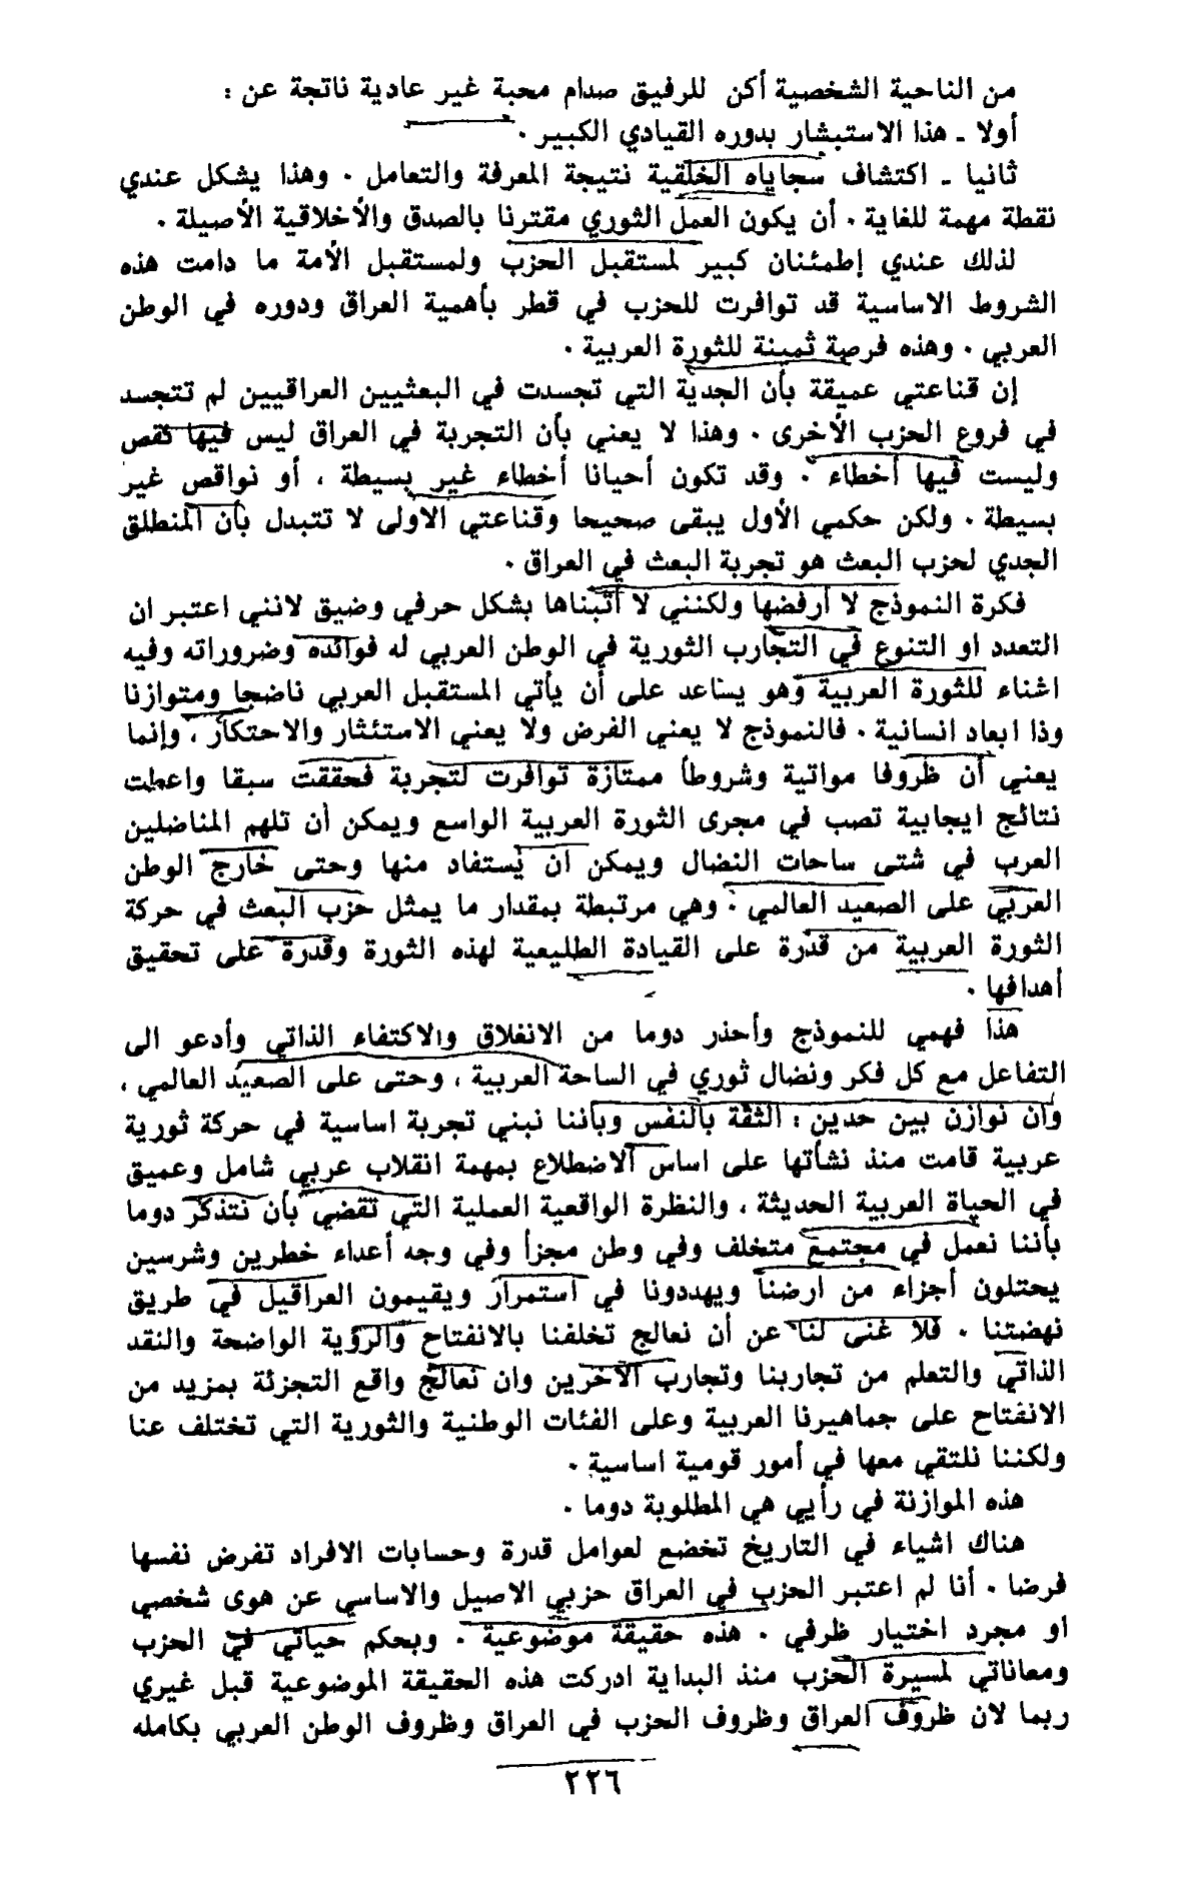 من الناحية الشخصية أكن للرفيق صدام محبة غير عادية ناتجة عن :
أولا ـ هذا الاستبشار بدوره القيادي الكبير .
ثانيا ـ اكتشاف سجاياه الخلقية نتيجة المعرفة والتعامل . وهذا يشكل عندي
نقطة مهمة للغاية . أن يكون العمل الثوري مقترنا بالصدق والأخلاقية الأصيلة .
لذلك عندي إطمئنان كبير لمستقبل الحزب ولمستقبل الأمة ما دامت هذه
الشروط الاساسية قد توافرت للحزب في قطر بأهمية العراق ودوره في الوطن
العربي . وهذه فرصة ثمينة للثورة العربية .
إن قناعتي عميقة بأن الجدية التي تجسدت في البعثيين العراقيين لم تتجسد
في فروع الحزب الأخرى . وهذا لا يعني بأن التجربة في العراق ليس فيها نقص
وليست فيها أخطاء . وقد تكون أحيانا أخطاء غير بسيطة ، أو نواقص غير
بسيطة . ولكن حكمي الأول يبقى صحيحا وقناعتي الاولى لا تتبدل بأن المنطلق
الجدي لحزب البعث هو تجربة البعث في العراق .
فكرة النموذج لا أرفضها ولكنني لا أتبناها بشكل حرفي وضيق لانني اعتبر ان
التعدد او التنوع في التجارب الثورية في الوطن العربي له فوائده وضروراته وفيه
اغناء للثورة العربية وهو يساعد على أن يأتي المستقبل العربي ناضجا ومتوازنا
وذا ابعاد انسانية . فالنموذج لا يعني الفرض ولا يعني الاستئثار والاحتكار ، وإنما
يعني أن ظروفا مواتية وشروطاً ممتازة توافرت لتجربة فحققت سبقا واعطت
نتائج ايجابية تصب في مجرى الثورة العربية الواسع ويمكن أن تلهم المناضلين
العرب في شتى ساحات النضال ويمكن ان يستفاد منها وحتى خارج الوطن
العربي على الصعيد العالمي : وهي مرتبطة بمقدار ما يمثل حزب البعث في حركة
الثورة العربية من قدرة على القيادة الطليعية لهذه الثورة وقدرة على تحقيق
أهدافها .
هذا فهمي للنموذج وأحذر دوما من الانغلاق والاكتفاء الذاتي وأدعو الى
التفاعل مع كل فكر ونضال ثوري في الساحة العربية ، وحتى على الصعيد العالمي ،
وان نوازن بين حدين : الثقة بالنفس وبأننا نبني تجربة اساسية في حركة ثورية
عربية قامت منذ نشأتها على اساس الاضطلاع بمهمة انقلاب عربي شامل وعميق
في الحياة العربية الحديثة ، والنظرة الواقعية العملية التي تقضي بأن نتذكر دوما
بأننا نعمل في مجتمع متخلف وفي وطن مجزأ وفي وجه أعداء خطرين وشرسين
يحتلون أجزاء من ارضنا ويهددونا في استمرار ويقيمون العراقيل في طريق
نهضتنا . فلا غنى لنا عن أن نعالج تخلفنا بالانفتاح والرؤية الواضحة والنقد
الذاتي والتعلم من تجاربنا وتجارب الآخرين وان نعالج واقع التجزئة بمزيد من
الانفتاح على جماهيرنا العربية وعلى الفئات الوطنية والثورية التي تختلف عنا
ولكننا نلتقي معها في أمور قومية اساسية .
هذه الموازنة في رأيي هي المطلوبة دوما .
هناك اشياء في التاريخ تخضع لعوامل قدرة وحسابات الافراد تفرض نفسها
فرضا . أنا لم اعتبر الحزب في العراق حزبي الاصيل والاساسي عن هوى شخصي
او مجرد اختيار ظرفي . هذه حقيقة موضوعية . وبحكم حياتي في الحزب
ومعاناتي لمسيرة الحزب منذ البداية ادركت هذه الحقيقة الموضوعية قبل غيري
ربما لان ظروف العراق وظروف الحزب في العراق وظروف الوطن العربي بكامله
٢٢٦